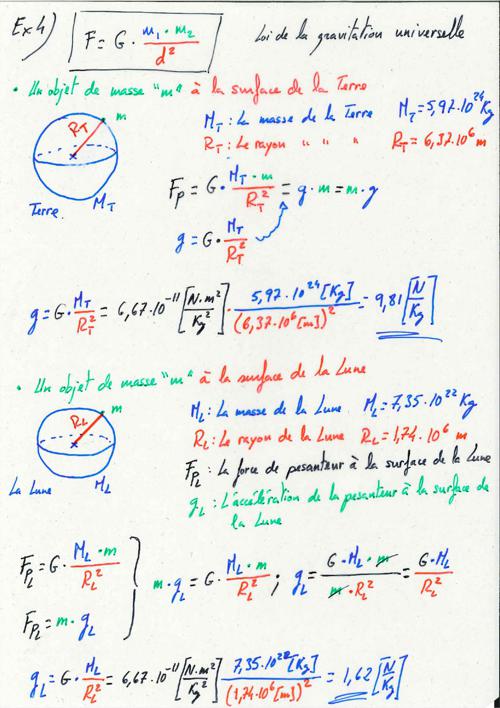 Ex4) F = G · m₁ · m₂ / d² Loi de la gravitation universelle
• Un objet de masse "m" à la surface de la Terre
m
R_T
Terre M_T
M_T : La masse de la Terre M_T = 5,97·10²⁴ Kg
R_T : Le rayon " " " R_T = 6,37·10⁶ m
F_p = G · M_T · m / R_T² = g · m = m · g
g = G · M_T / R_T²
g = G · M_T / R_T² = 6,67·10⁻¹¹ [N·m² / Kg²] · 5,97·10²⁴ [Kg] / (6,37·10⁶ [m])² = 9,81 [N / Kg]
• Un objet de masse "m" à la surface de la Lune
m
R_L
La Lune M_L
M_L : La masse de la Lune. M_L = 7,35·10²² Kg
R_L : Le rayon de la Lune R_L = 1,74·10⁶ m
F_PL : La force de pesanteur à la surface de la Lune
g_L : L'accélération de la pesanteur à la surface de
la Lune
F_PL = G · M_L · m / R_L²
F_PL = m · g_L
m · g_L = G · M_L · m / R_L² ; g_L = G · M_L · m / m · R_L² = G · M_L / R_L²
g_L = G · M_L / R_L² = 6,67·10⁻¹¹ [N·m² / Kg²] 7,35·10²² [Kg] / (1,74·10⁶ [m])² = 1,62 [N / Kg]